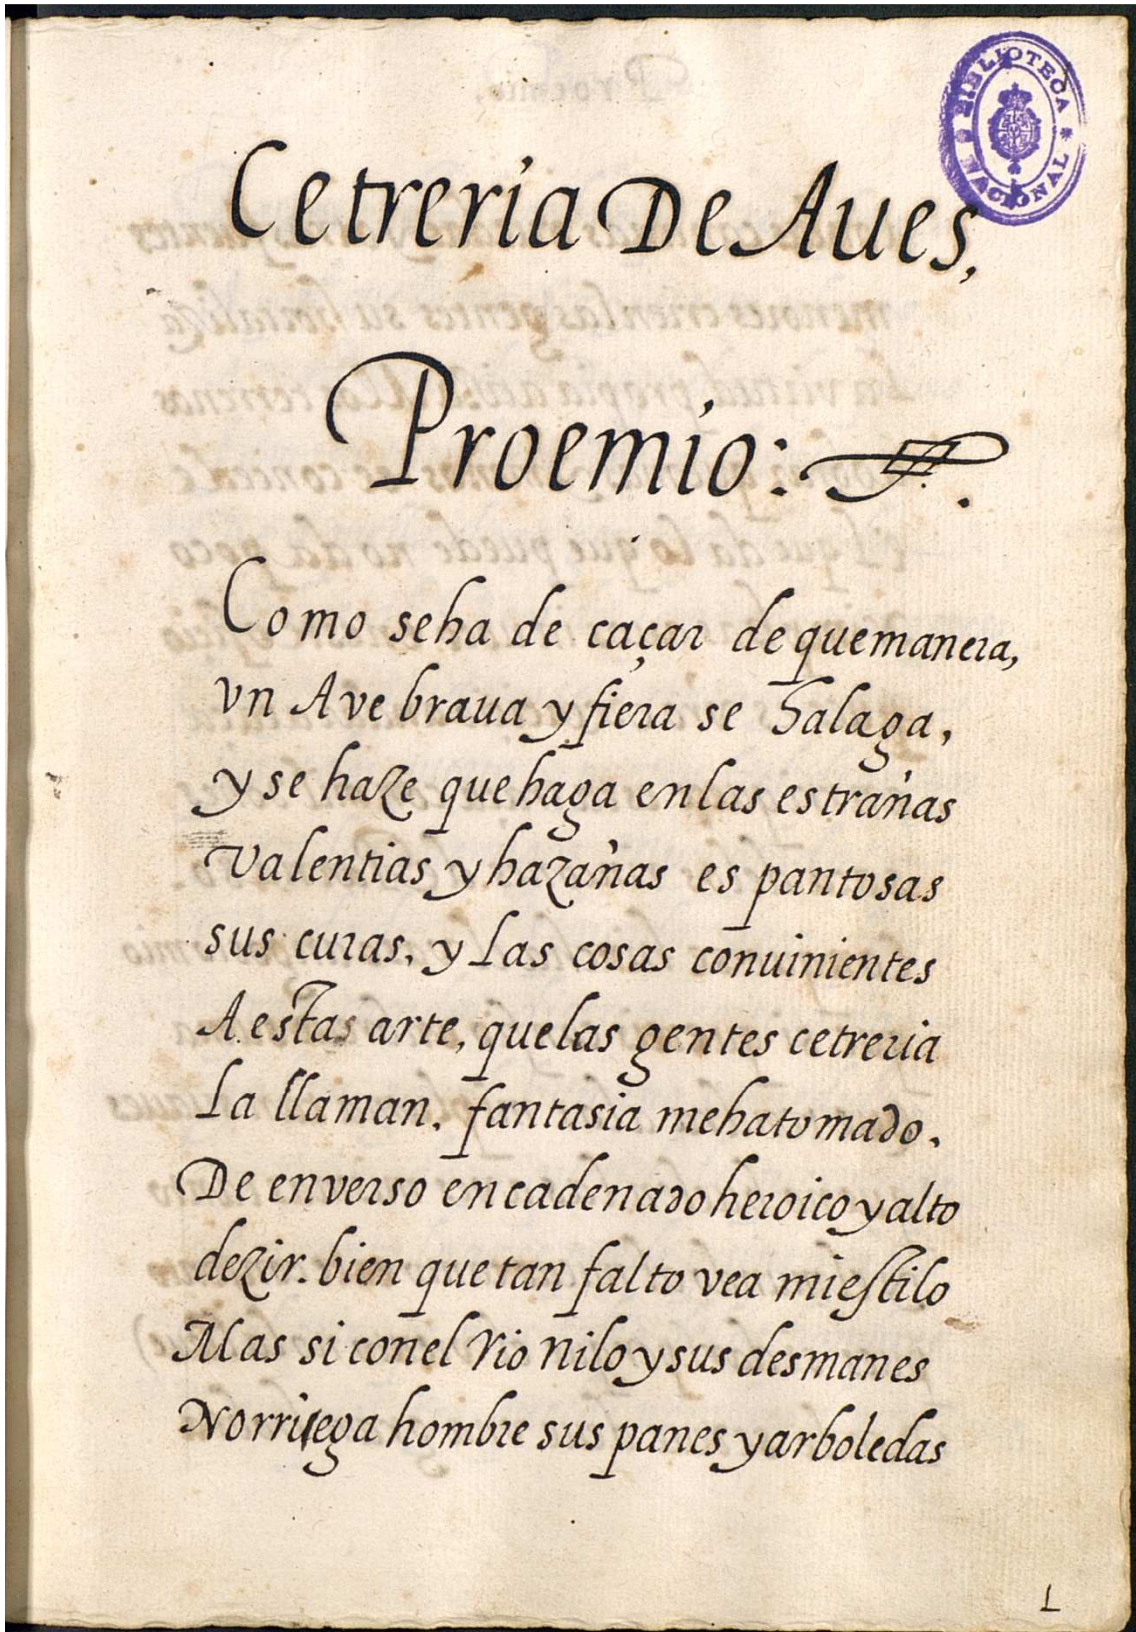 BIBLIOTECA NACIONAL
Cetreria De Aues,
Proemio:
Como seha de caçar de quemanera,
vn Ave braua y fiera se halaga,
y se haze que haga enlas estrañas
valentias y hazañas es pantosas
sus curas, y Las cosas conuinientes
A estas arte, quelas gentes cetreria
La llaman. fantasia mehatomado.
De enverso encadenado heroico y alto
dezir. bien que tan falto vea miestilo
Mas si conel Rio nilo y sus desmanes
Norriega hombre sus panes y arboledas
1